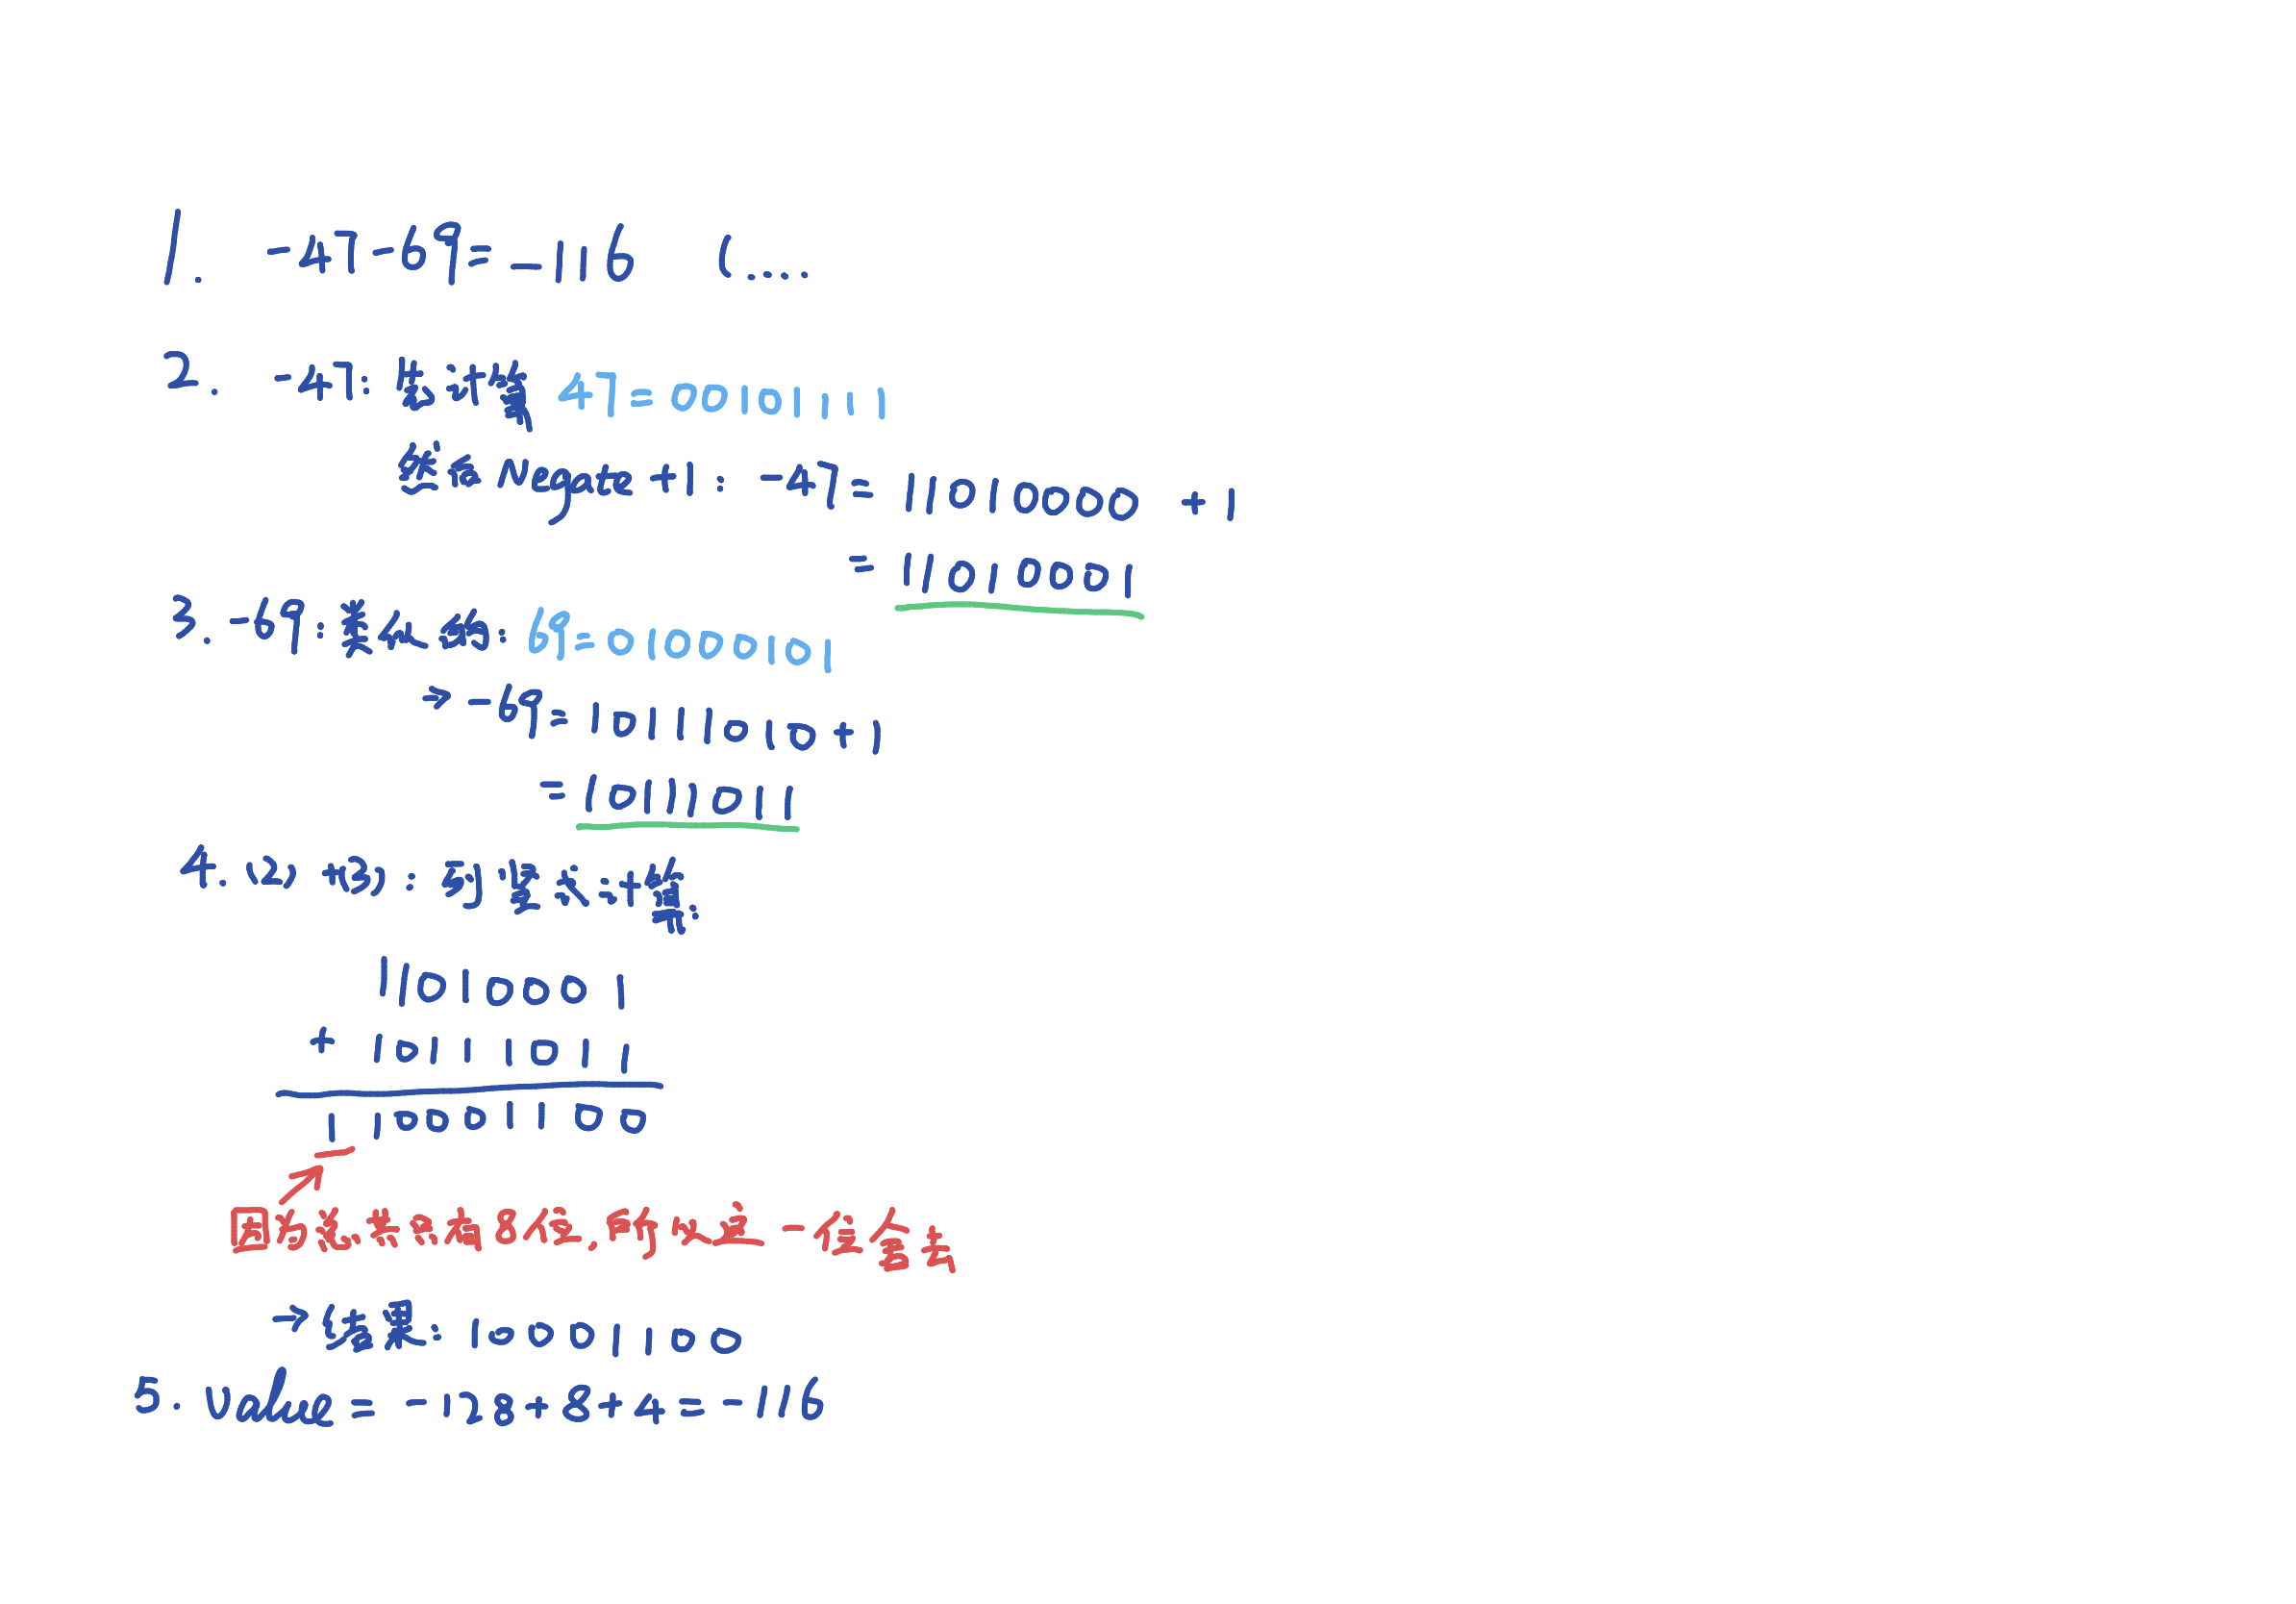 1. -47-69=-116 (....
2. -47: 先计算 47=00101111
然后Negate+1: -47=11010000 +1
=11010001
3. -69: 类似的: 69=01000101
→ -69=10111010+1
=10111011
4. (2) +(3): 列竖式计算:
11010001
+ 10111011
110001100
因为总共只有8位,所以这一位舍去
→结果: 10001100
5. Value= -128+8+4=-116